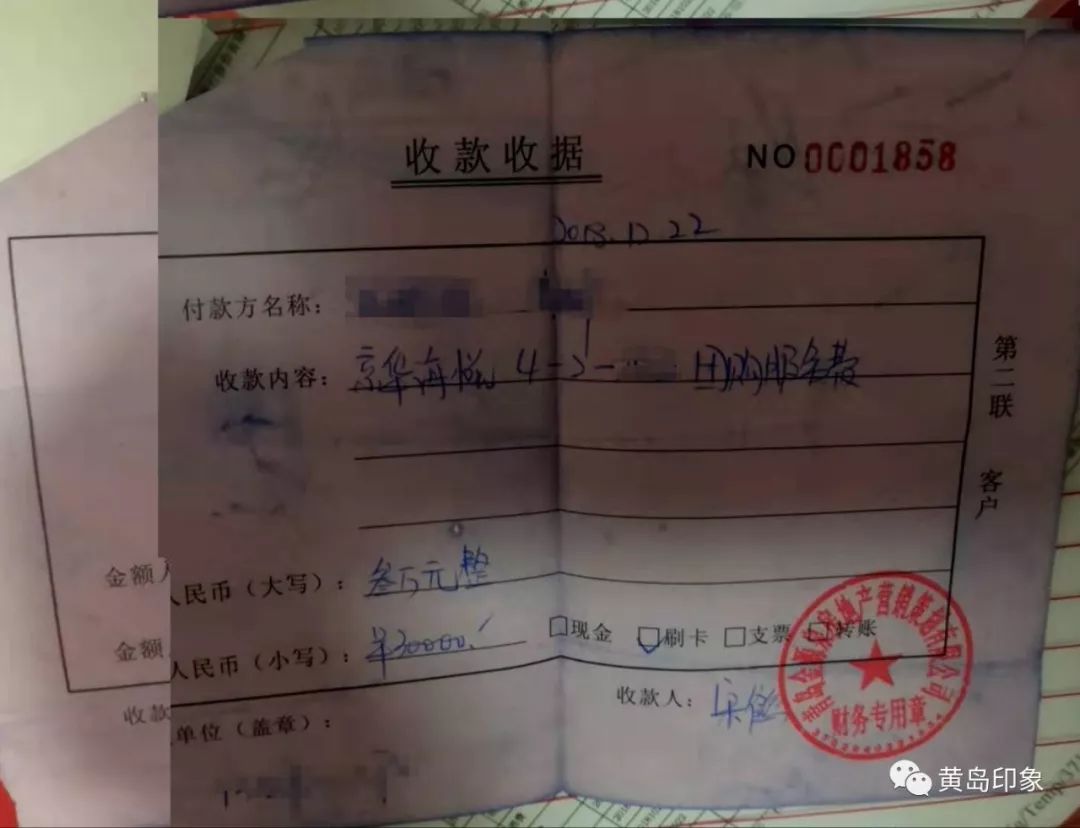 收款收据
NO 0001858
2018.12.22
付款方名称：
收款内容： 京华海悦 4-3- 团购服务费
第二联 客户
金额人民币（大写）： 叁万元整
金额人民币（小写）： ¥30000.
□现金 □刷卡 □支票 □转账
收款单位（盖章）：
收款人： 宋
房地产营销策划有限公司
财务专用章
黄岛印象